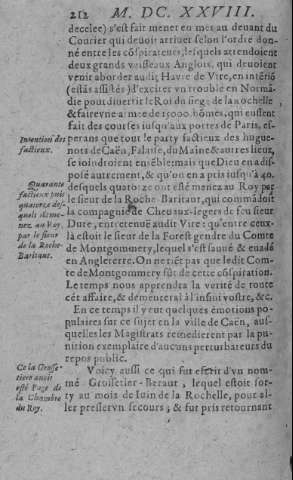 212 M. DC. XXVIII.
decelee) s'est fait mener en mer au devant du
Courier qui devoit arriver selon l'ordre don-
né entre les cōspirateurs, lesquels attendoient
deux grands vaisseaux Anglois, qui devoient
venir aborder audit Havre de Vire, en intētiō
(estās assistés) d'exciter vn trouble en Normā-
die pour divertir le Roi du siege de la Rochelle
& faire vne armee de 15000. hōmes, qui eussent
fait des courses jusqu'aux portes de Paris, es-
perans que tout le party factieux des hugue-
nots de Caën, Falaise, du Maine & autres lieux,
se joindroient ensēble: mais que Dieu en a dis-
posé autrement, & qu'on en a pris jusqu'à 40.
desquels quatorze ont esté menez au Roy par
le sieur de la Roche-Baritaut, qui commādoit
la compagnie de Chevaux-legers de feu sieur
Dure, entretenuë audit Vire: qu'entre ceux-
là estoit le sieur de la Forest gendre du Comte
de Montgommery, lequel s'est sauvé & evadé
en Angleterre. On ne tiēt pas que ledit Com-
te de Montgommery fût de cette cōspiration.
Le temps nous apprendra la verité de toute
cét affaire, & démentera à l'insini vostre, &c.
En ce temps il y eut quelques émotions po-
pulaires sur ce sujet en la ville de Caën, aus-
quelles les Magistrats remedierent par la pu-
nition exemplaire d'aucuns perturbateurs du
repos public.
Voicy aussi ce qui fut escrit d'vn nom-
mé Grossetier-Beraut, lequel estoit sor-
ty au mois de Iuin de la Rochelle, pour al-
ler presser vn secours; & fut pris retournant
Intention des
factieux.
Quarante
factieux pris
quatorze des-
quels menez
au Roy,
par le sieur
de la Roche-
Baritaut.
Ce la Grosse-
tiere avoit
esté Page de
la Chambre
du Roy.